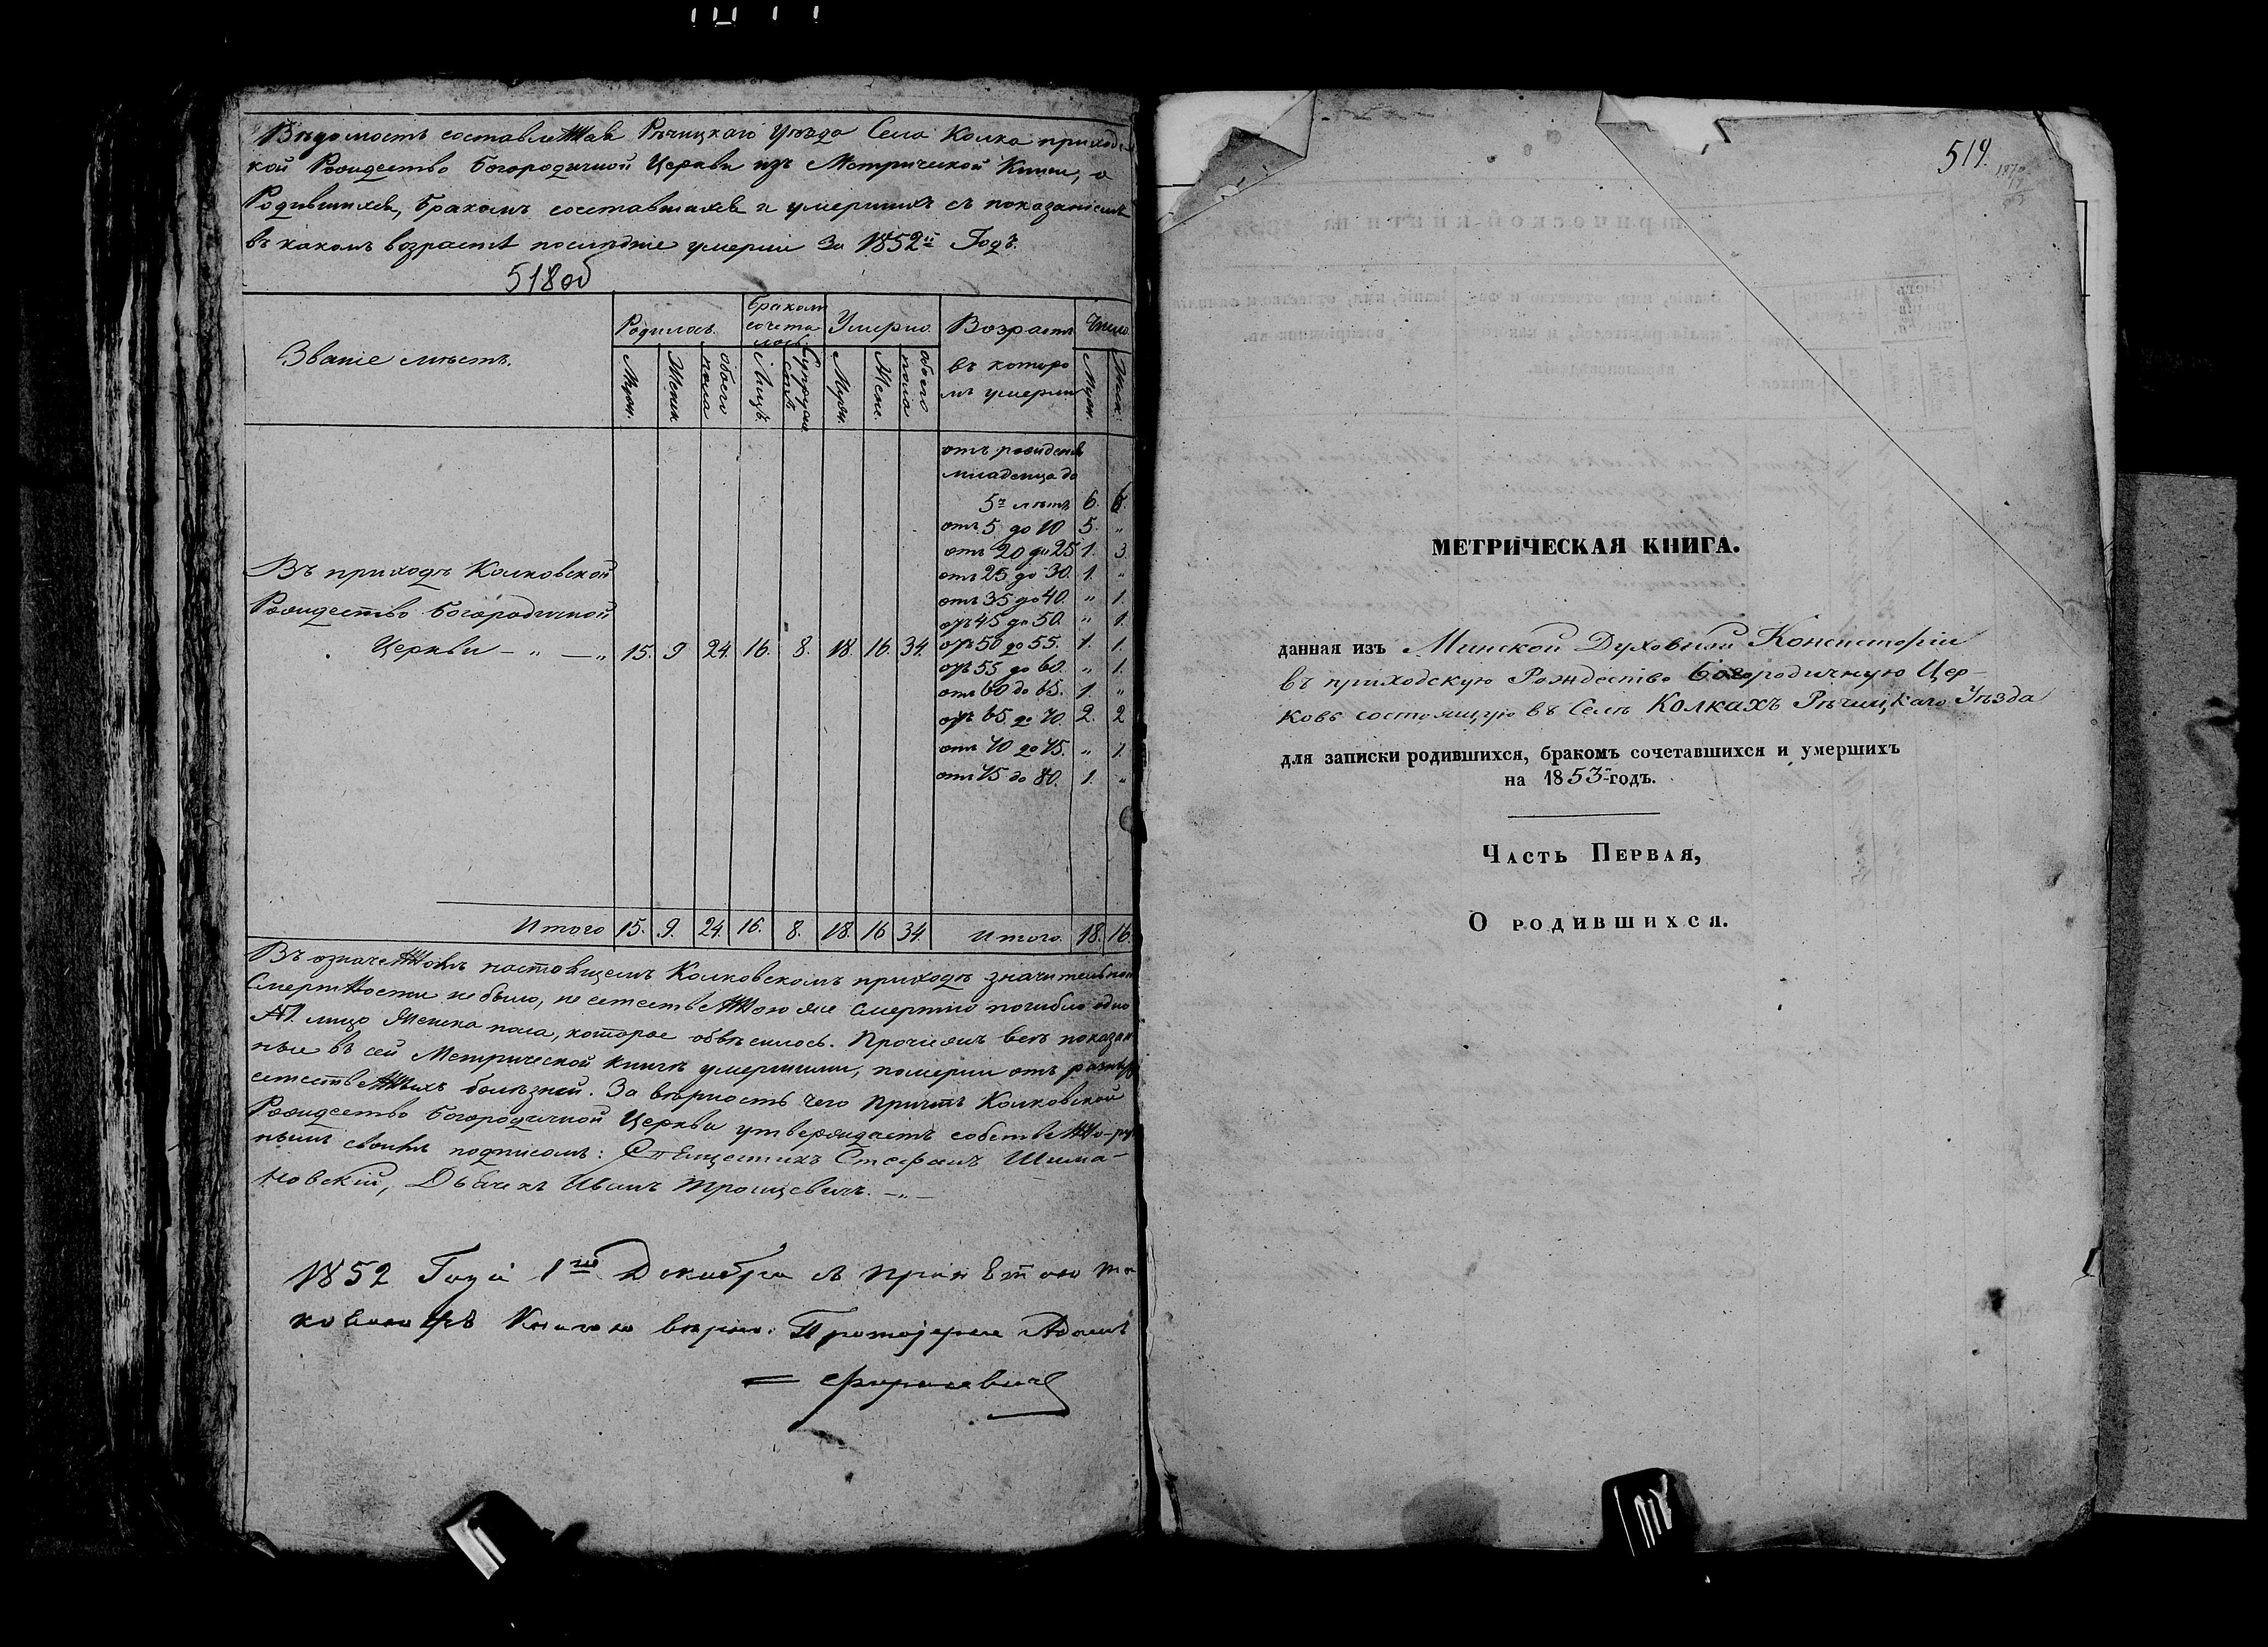 Вѣдомость составленная Рѣчицкаго уѣзда Села Колка приходс
кой Рождество Богородичной Церкви изъ Метрической Книги, о
Родившихся, бракомъ сочетавшихся и умершихъ съ показаніемъ
въ какомъ возрастѣ послѣдніе умерли за 1852й Годъ.
518об
Званіе мѣстъ.
Родилось.
Бракомъ сочета лось
Умерло.
Возрастъ въ которо мъ умерли
Число.
Муж.
Женск.
обоего пола
Лицъ.
Супруж.
Муж.
Жен.
обоего пола
Муж.
Женск.
отъ рожденія
младенца до
5ти лѣтъ 6. 6.
отъ 5 до 10 5. "
отъ 20 до 25 1. 3
отъ 25 до 30. 1. "
отъ 35 до 40. " 1.
отъ 45 до 50. " 1.
отъ 50 до 55. 1. 1.
отъ 55 до 60. " 1.
отъ 60 до 65. 1. "
отъ 65 до 70. 2. 2
отъ 70 до 75. " 1.
отъ 75 до 80. 1. "
Въ приходѣ Колковской
Рождество Богородичной
Церкви – " – " 15. 9 24. 16. 8. 18. 16. 34.
Итого 15. 9. 24. 16. 8. 18. 16 34. Итого. 18. 16.
Въ означенномъ настоящемъ Колковскомъ приходѣ значительной
Смертности не было, не естественною же смертію погибло одно
№1. лицо Женска пола, которое объвѣсилось. Прочіежъ всѣ показан
ные въ сей Метрической Книгѣ умершими, померли отъ разныхъ
естественныхъ болѣзней. За вѣрность чего Причтъ Колковской
Рождество Богородичной Церкви утверждаетъ собственно-руч
нымъ своимъ подписомъ: Священникъ Стефанъ Шима-
новскій, Дьячекъ Иванъ Троицевичъ. – " –
1852 Года 1го Декабря съ
Книгою вѣрно: Протоіерей Адамъ
519.
МЕТРИЧЕСКАЯ КНИГА.
данная изъ Минской Духовной Консисторіи
въ приходскую Рождество Богородичную Цер-
ковь состоящую въ Селѣ Колкахъ Рѣчицкаго Уѣзда
для записки родившихся, бракомъ сочетавшихся и умершихъ
на 1853-годъ.
Часть Первая,
О родившихся.